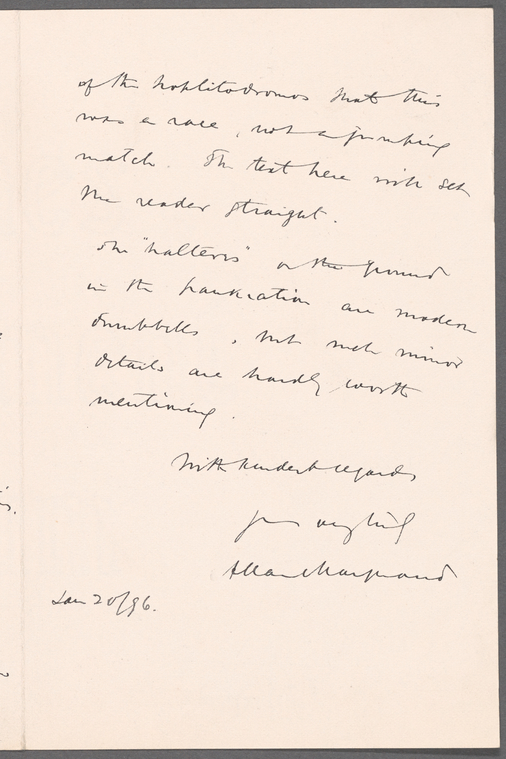 of the hoplitodromos that this
was a race, not a jumping
match. The text here will set
the reader straight.
The "halteres" on the ground
in the pankration are modern
dumbbells, but such minor
details are hardly worth
mentioning.
With kindest regards
Yours very truly
Allan Marquand
Jan 20/96.